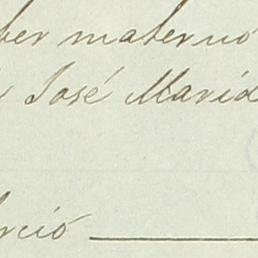 ber materno
José Maria
rció